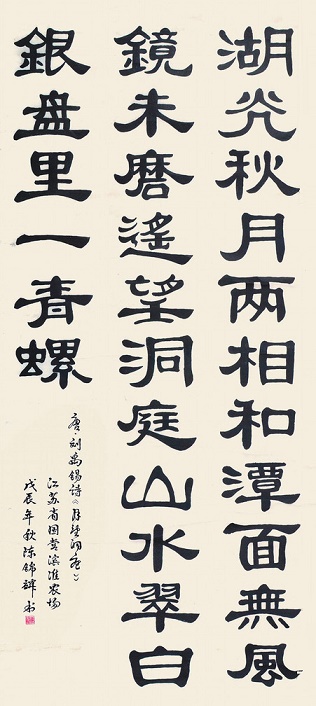 湖光秋月两相和潭面無風
鏡未磨遙望洞庭山水翠白
銀盘里一青螺
唐·刘禹锡诗《望洞庭》
江苏省国营滨淮农场
戊辰年秋陈锦辉书